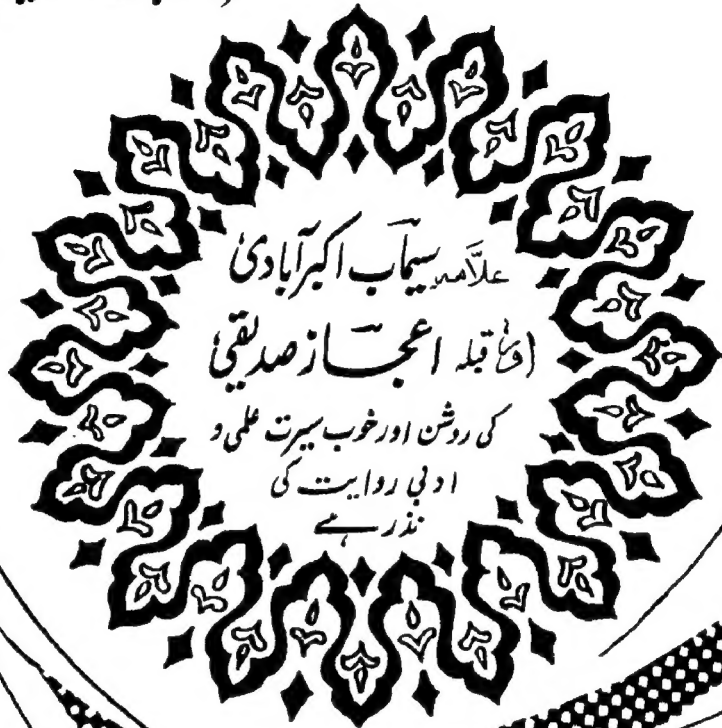 علامہ سیماب اکبرآبادی
اور قبلہ اعجاز صدیقی
کی روشن اور خوب سیرت علمی و
ادبی روایت کی
نذر ہے